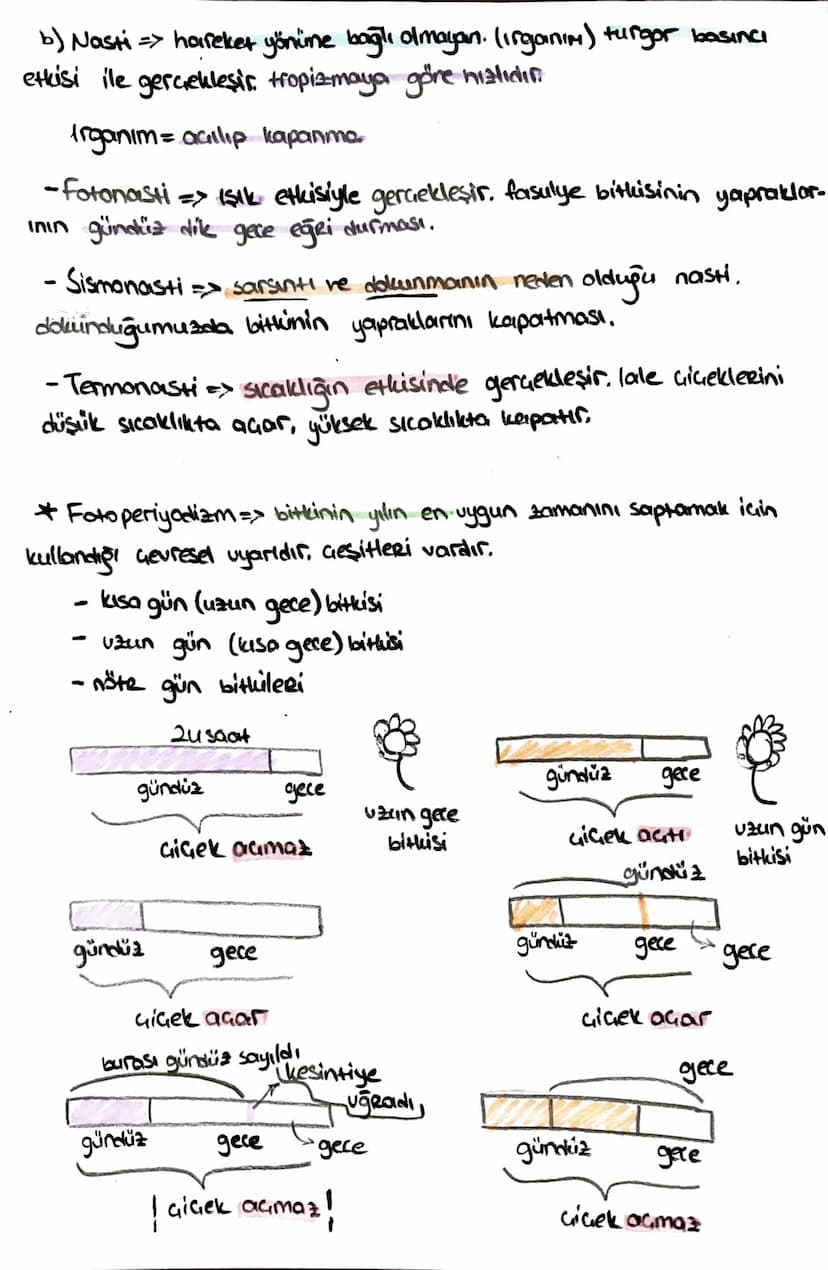 b) Nasti => hareket yönüne bağlı olmayan. (ırganım) turgor basıncı
etkisi ile gerçekleşir. tropizmaya göre hızlıdır.
ırganım = açılıp kapanma
- Fotonasti => ışık etkisiyle gerçekleşir. fasulye bitkisinin yapraklar-
ının gündüz dik gece eğri durması.
- Sismonasti => sarsıntı ve dokunmanın neden olduğu nasti.
dokunduğumuzda bitkinin yapraklarını kapatması.
- Termonasti => sıcaklığın etkisinde gerçekleşir. lale çiçeklerini
düşük sıcaklıkta açar, yüksek sıcaklıkta kapatır.
* Fotoperiyodizm => bitkinin yılın en uygun zamanını saptamak için
kullandığı çevresel uyarıdır. çeşitleri vardır.
- kısa gün (uzun gece) bitkisi
- uzun gün (kısa gece) bitkisi
- nötr gün bitkileri
24 saat
gündüz gece
çiçek açmaz
uzun gece
bitkisi
gündüz gece
çiçek açtı
uzun gün
bitkisi
gündüz gece
çiçek açar
gündüz
gündüz gece gece
çiçek açar
burası gündüz sayıldı
kesintiye
uğradı
gündüz gece gece
! çiçek açmaz !
gece
gündüz gece
çiçek açmaz